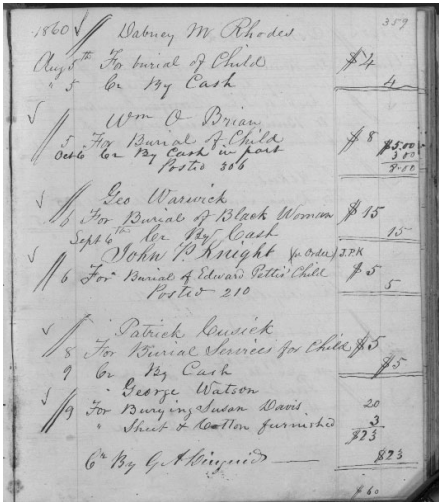 1860 Dabney M. Rhodes 359
Aug 5th For burial of Child $4
" 5 Cr By Cash 4
Wm O Brian
5 For Burial of Child $8 $5.00
Oct 6 Cr By Cash in part 3 00
Posted 306 8.00
Geo Warwick
6 For Burial of Black Woman $15
Sept 6th Cr By Cash 15
John P Knight (or Order) J.P.K
6 For Burial of Edward Pettis' Child $5
Posted 210 5
Patrick Cusick
8 For Burial Services for Child $5
9 Cr By Cash $5
George Watson
9 For Burying Susan Davis 20
" Sheet & Cotton furnished 3
$23
Cr By G A Diuguid $23
$60